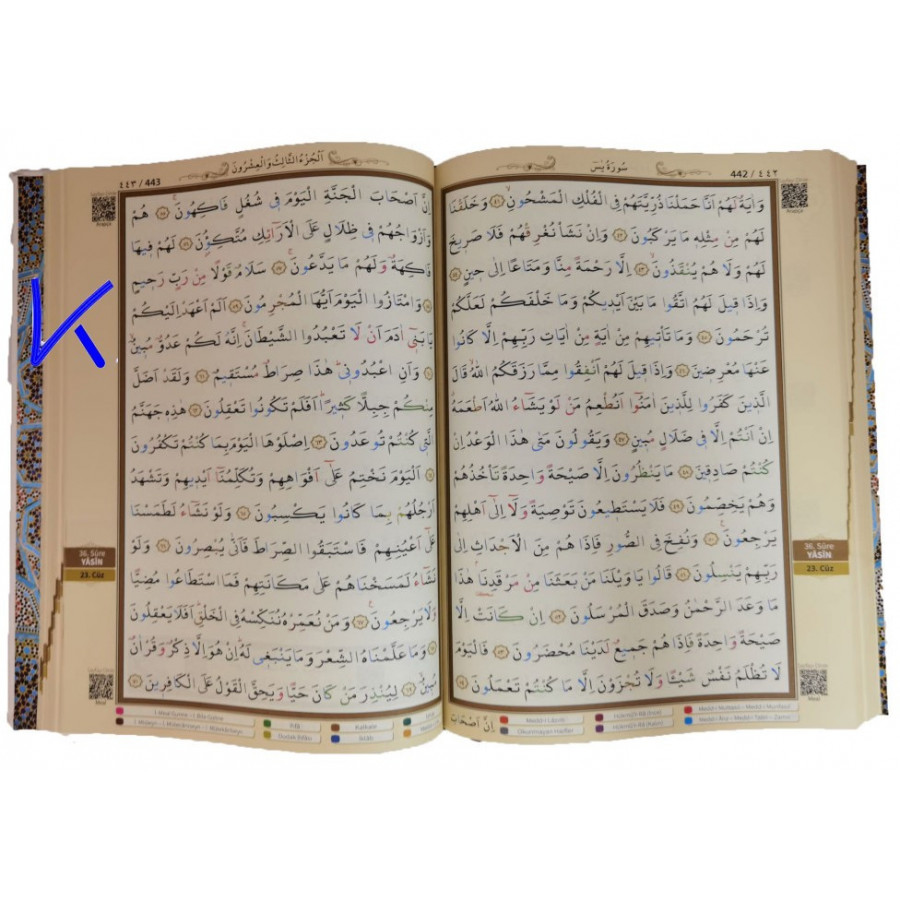 سُورَةُ يٰسٓ
442 / ٤٤٢
وَاٰيَةٌ لَهُمْ اَنَّا حَمَلْنَا ذُرِّيَّتَهُمْ فِي الْفُلْكِ الْمَشْحُونِۙ ﴿٤١﴾ وَخَلَقْنَا
لَهُمْ مِنْ مِثْلِه۪ مَا يَرْكَبُونَ ﴿٤٢﴾ وَاِنْ نَشَأْ نُغْرِقْهُمْ فَلَا صَر۪يخَ
لَهُمْ وَلَا هُمْ يُنْقَذُونَۙ ﴿٤٣﴾ اِلَّا رَحْمَةً مِنَّا وَمَتَاعًا اِلٰى ح۪ينٍ ﴿٤٤﴾
وَاِذَا ق۪يلَ لَهُمُ اتَّقُوا مَا بَيْنَ اَيْد۪يكُمْ وَمَا خَلْفَكُمْ لَعَلَّكُمْ
تُرْحَمُونَ ﴿٤٥﴾ وَمَا تَأْت۪يهِمْ مِنْ اٰيَةٍ مِنْ اٰيَاتِ رَبِّهِمْ اِلَّا كَانُوا
عَنْهَا مُعْرِض۪ينَ ﴿٤٦﴾ وَاِذَا ق۪يلَ لَهُمْ اَنْفِقُوا مِمَّا رَزَقَكُمُ اللّٰهُۙ قَالَ
الَّذ۪ينَ كَفَرُوا لِلَّذ۪ينَ اٰمَنُٓوا اَنُطْعِمُ مَنْ لَوْ يَشَٓاءُ اللّٰهُ اَطْعَمَهُۗ
اِنْ اَنْتُمْ اِلَّا ف۪ي ضَلَالٍ مُب۪ينٍ ﴿٤٧﴾ وَيَقُولُونَ مَتٰى هٰذَا الْوَعْدُ اِنْ
كُنْتُمْ صَادِق۪ينَ ﴿٤٨﴾ مَا يَنْظُرُونَ اِلَّا صَيْحَةً وَاحِدَةً تَأْخُذُهُمْ
وَهُمْ يَخِصِّمُونَ ﴿٤٩﴾ فَلَا يَسْتَط۪يعُونَ تَوْصِيَةً وَلَٓا اِلٰٓى اَهْلِهِمْ
يَرْجِعُونَ۟ ﴿٥٠﴾ وَنُفِخَ فِي الصُّورِ فَاِذَا هُمْ مِنَ الْاَجْدَاثِ اِلٰى
رَبِّهِمْ يَنْسِلُونَ ﴿٥١﴾ قَالُوا يَا وَيْلَنَا مَنْ بَعَثَنَا مِنْ مَرْقَدِنَاۢ هٰذَا
مَا وَعَدَ الرَّحْمٰنُ وَصَدَقَ الْمُرْسَلُونَ ﴿٥٢﴾ اِنْ كَانَتْ اِلَّا
صَيْحَةً وَاحِدَةً فَاِذَا هُمْ جَم۪يعٌ لَدَيْنَا مُحْضَرُونَ ﴿٥٣﴾ فَالْيَوْمَ
لَا تُظْلَمُ نَفْسٌ شَيْـًٔا وَلَا تُجْزَوْنَ اِلَّا مَا كُنْتُمْ تَعْمَلُونَ ﴿٥٤﴾
اِنَّ اَصْحَابَ
36. Sûre
YÂSÎN
23. Cüz
اَلْجُزْءُ الثَّالِثُ وَالْعِشْرُونَ
٤٤٣ / 443
اِنَّ اَصْحَابَ الْجَنَّةِ الْيَوْمَ ف۪ي شُغُلٍ فَاكِهُونَۚ ﴿٥٥﴾ هُمْ
وَاَزْوَاجُهُمْ ف۪ي ظِلَالٍ عَلَى الْاَرَٓائِكِ مُتَّكِؤُ۫نَ ﴿٥٦﴾ لَهُمْ ف۪يهَا
فَاكِهَةٌ وَلَهُمْ مَا يَدَّعُونَۚ ﴿٥٧﴾ سَلَامٌ قَوْلًا مِنْ رَبٍّ رَح۪يمٍ
﴿٥٨﴾ وَامْتَازُوا الْيَوْمَ اَيُّهَا الْمُجْرِمُونَ ﴿٥٩﴾ اَلَمْ اَعْهَدْ اِلَيْكُمْ
يَا بَن۪ٓي اٰدَمَ اَنْ لَا تَعْبُدُوا الشَّيْطَانَۚ اِنَّهُ لَكُمْ عَدُوٌّ مُب۪ينٌۙ
﴿٦٠﴾ وَاَنِ اعْبُدُون۪يۜ هٰذَا صِرَاطٌ مُسْتَق۪يمٌ ﴿٦١﴾ وَلَقَدْ اَضَلَّ
مِنْكُمْ جِبِلًّا كَث۪يرًاۜ اَفَلَمْ تَكُونُوا تَعْقِلُونَ ﴿٦٢﴾ هٰذِه۪ جَهَنَّمُ
الَّت۪ي كُنْتُمْ تُوعَدُونَ ﴿٦٣﴾ اِصْلَوْهَا الْيَوْمَ بِمَا كُنْتُمْ تَكْفُرُونَ
﴿٦٤﴾ اَلْيَوْمَ نَخْتِمُ عَلٰٓى اَفْوَاهِهِمْ وَتُكَلِّمُنَٓا اَيْد۪يهِمْ وَتَشْهَدُ
اَرْجُلُهُمْ بِمَا كَانُوا يَكْسِبُونَ ﴿٦٥﴾ وَلَوْ نَشَٓاءُ لَطَمَسْنَا
عَلٰٓى اَعْيُنِهِمْ فَاسْتَبَقُوا الصِّرَاطَ فَاَنّٰى يُبْصِرُونَ ﴿٦٦﴾ وَلَوْ
نَشَٓاءُ لَمَسَخْنَاهُمْ عَلٰى مَكَانَتِهِمْ فَمَا اسْتَطَاعُوا مُضِيًّا
وَلَا يَرْجِعُونَ۟ ﴿٦٧﴾ وَمَنْ نُعَمِّرْهُ نُنَكِّسْهُ فِي الْخَلْقِۜ اَفَلَا يَعْقِلُونَ
﴿٦٨﴾ وَمَا عَلَّمْنَاهُ الشِّعْرَ وَمَا يَنْبَغ۪ي لَهُۜ اِنْ هُوَ اِلَّا ذِكْرٌ وَقُرْاٰنٌ
مُب۪ينٌۙ ﴿٦٩﴾ لِيُنْذِرَ مَنْ كَانَ حَيًّا وَيَحِقَّ الْقَوْلُ عَلَى الْكَافِر۪ينَ ﴿٧٠﴾
36. Sûre
YÂSÎN
23. Cüz
K